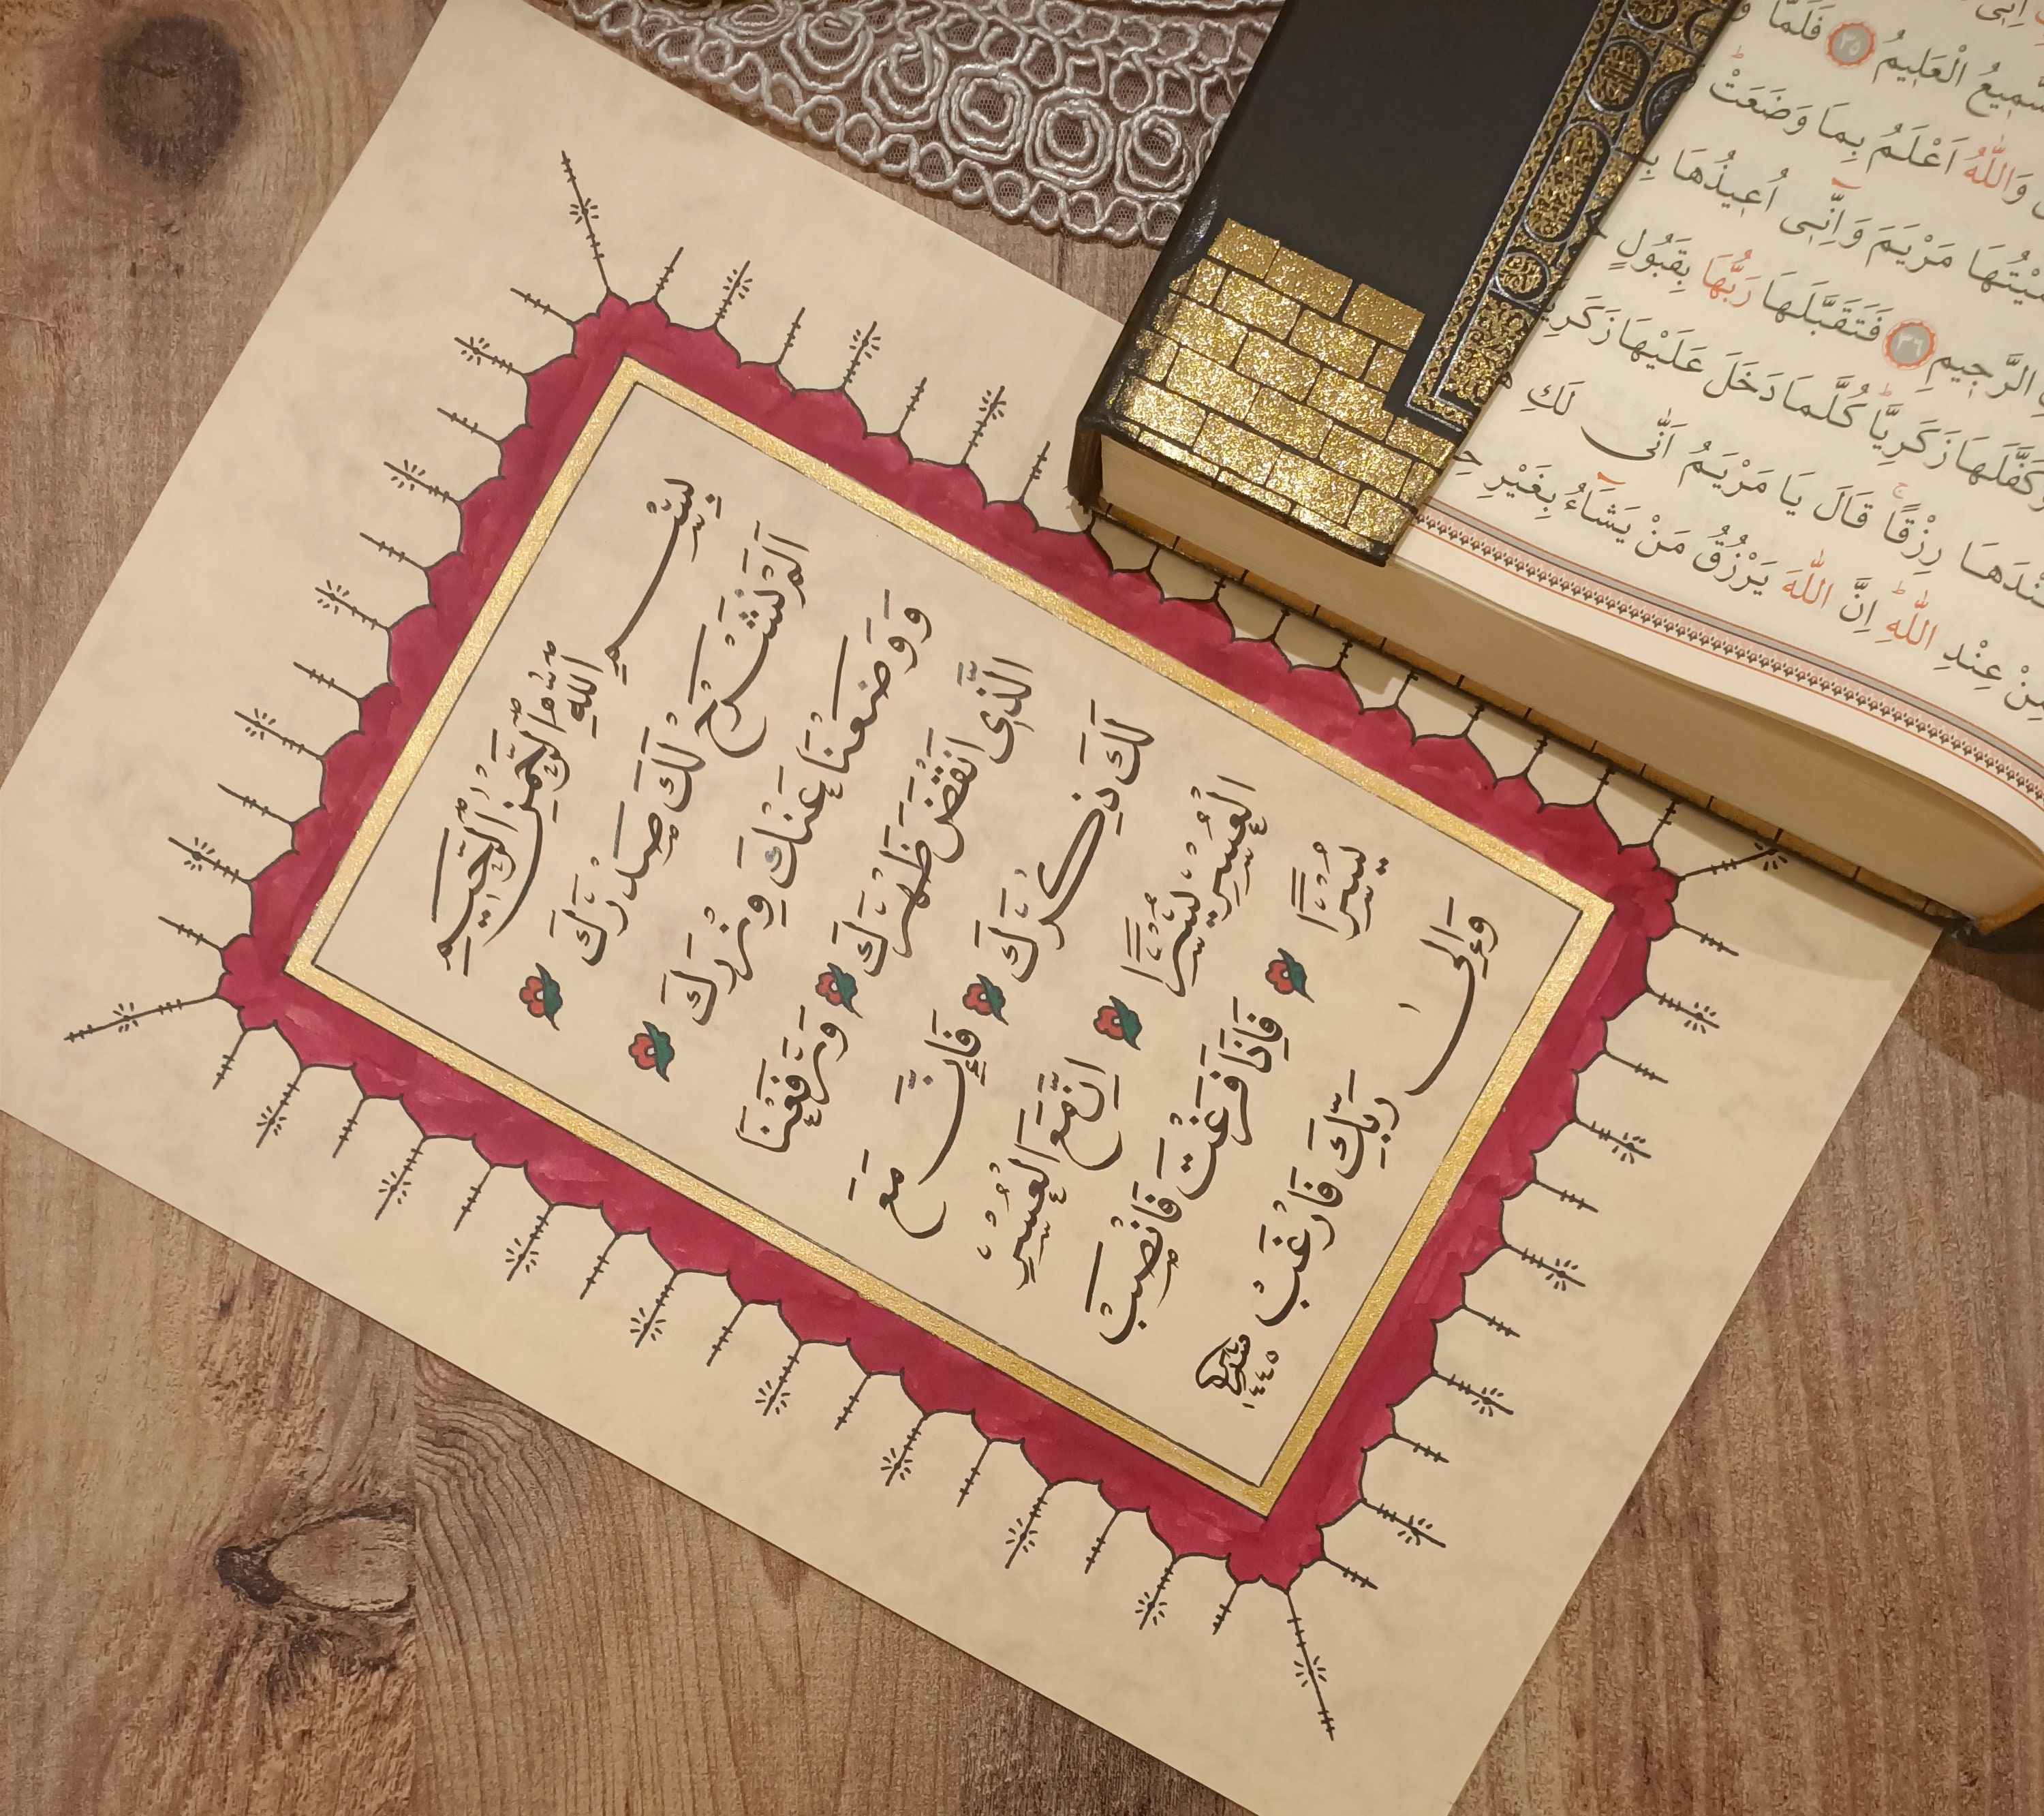 بِسْمِ اللهِ الرَّحْمٰنِ الرَّحِيمِ
اَلَمْ نَشْرَحْ لَكَ صَدْرَكَ
وَوَضَعْنَا عَنْكَ وِزْرَكَ
الَّذِى اَنْقَضَ ظَهْرَكَ وَرَفَعْنَا
لَكَ ذِكْرَكَ فَإِنَّ مَعَ
الْعُسْرِ يُسْرًا اِنَّ مَعَ الْعُسْرِ
يُسْرًا فَإِذَا فَرَغْتَ فَانْصَبْ
وَإِلٰى رَبِّكَ فَارْغَبْ
١٤٤٥
اِنِّى
الْعَلِيمُ ٣٥ فَلَمَّا
وَاللّٰهُ اَعْلَمُ بِمَا وَضَعَتْ
مَرْيَمَ وَاِنِّى اُعِيذُهَا
الرَّجِيمِ ٣٦ فَتَقَبَّلَهَا رَبُّهَا بِقَبُولٍ
زَكَرِيَّا كُلَّمَا دَخَلَ عَلَيْهَا
رِزْقًا قَالَ يَا مَرْيَمُ اَنّٰى لَكِ
عِنْدِ اللّٰهِ اِنَّ اللّٰهَ يَرْزُقُ مَنْ يَشَاءُ بِغَيْرِ